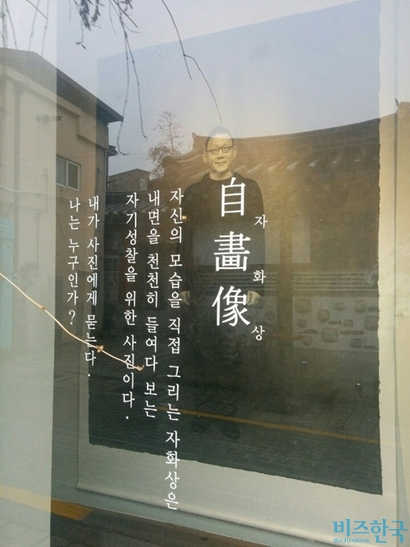 自畫像
자화상
자신의 모습을 직접 그리는 자화상은
내면을 천천히 들여다 보는
자기성찰을 위한 사진이다.
내가 사진에게 묻는다.
나는 누구인가?
비즈한국